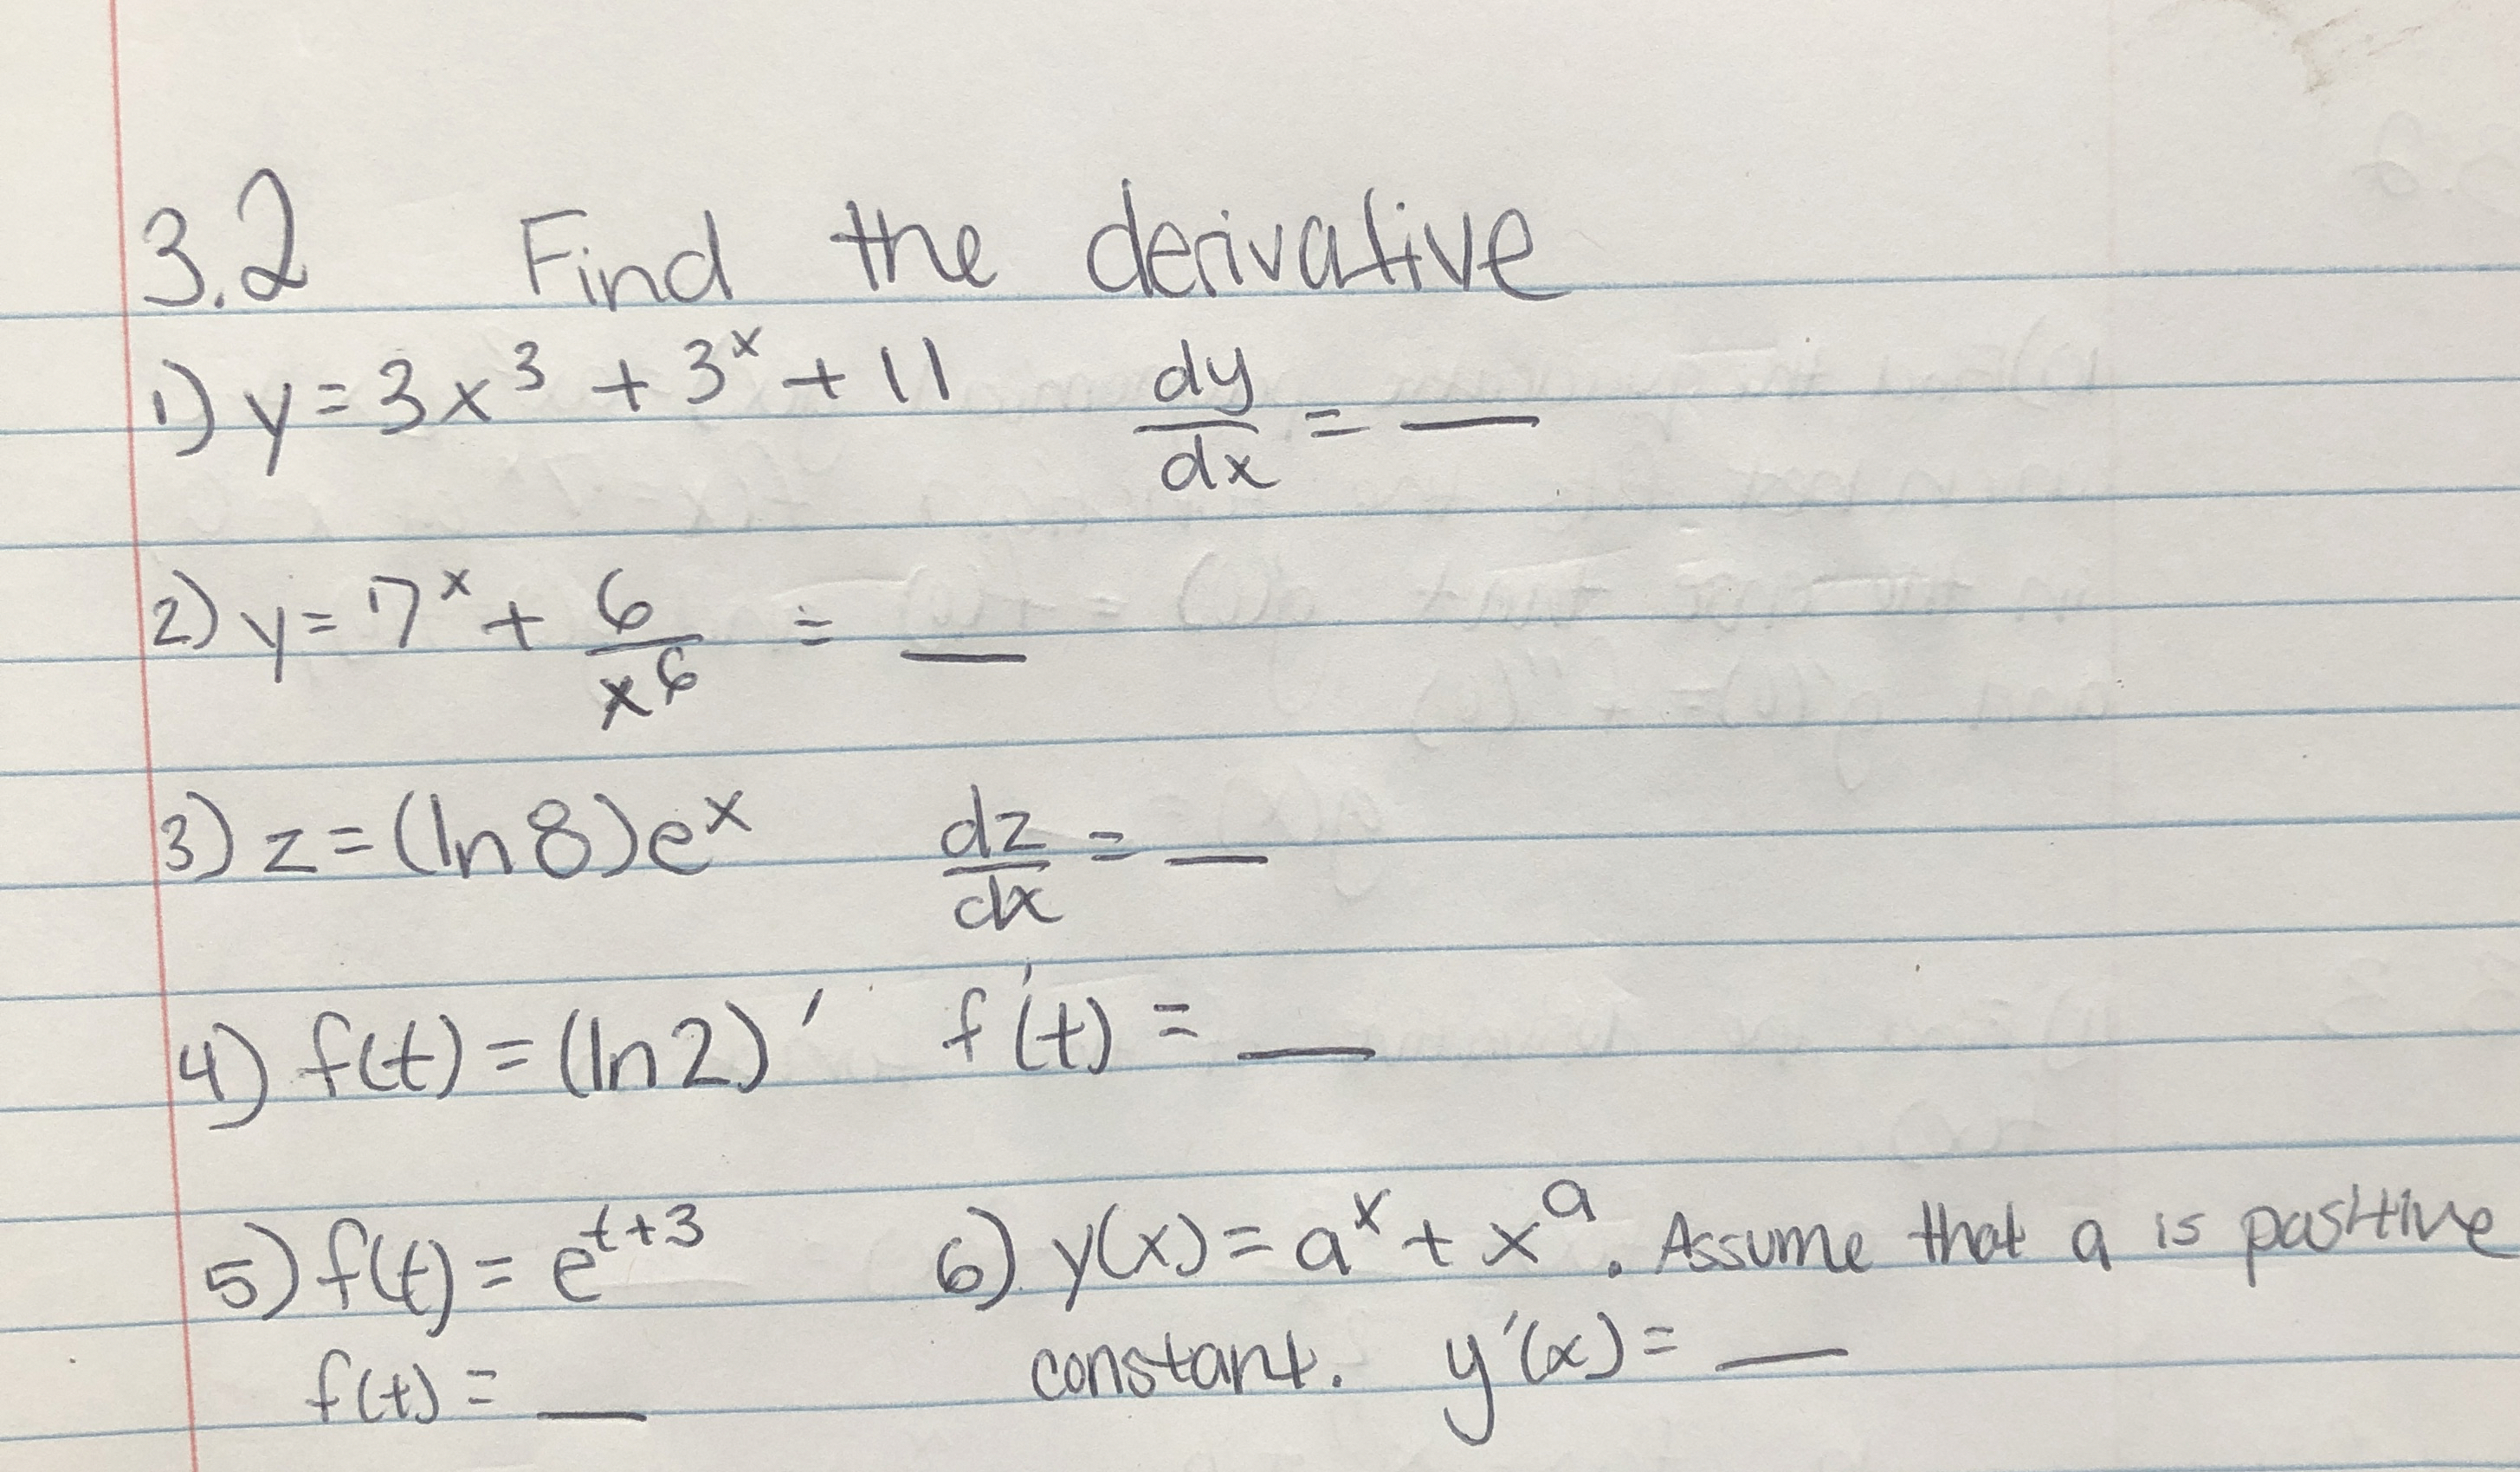 3.2 Find the derivative
1) y = 3x³ + 3ˣ + 11 dy/dx = __
2) y = 7ˣ + 6/x⁶ = __
3) z = (ln 8)eˣ dz/dx = __
4) f(t) = (ln 2)′ f′(t) = __
5) f(t) = e^(t+3) 6) y(x) = aˣ + xᵃ. Assume that a is positive
f(t) = __ constant. y′(x) = __